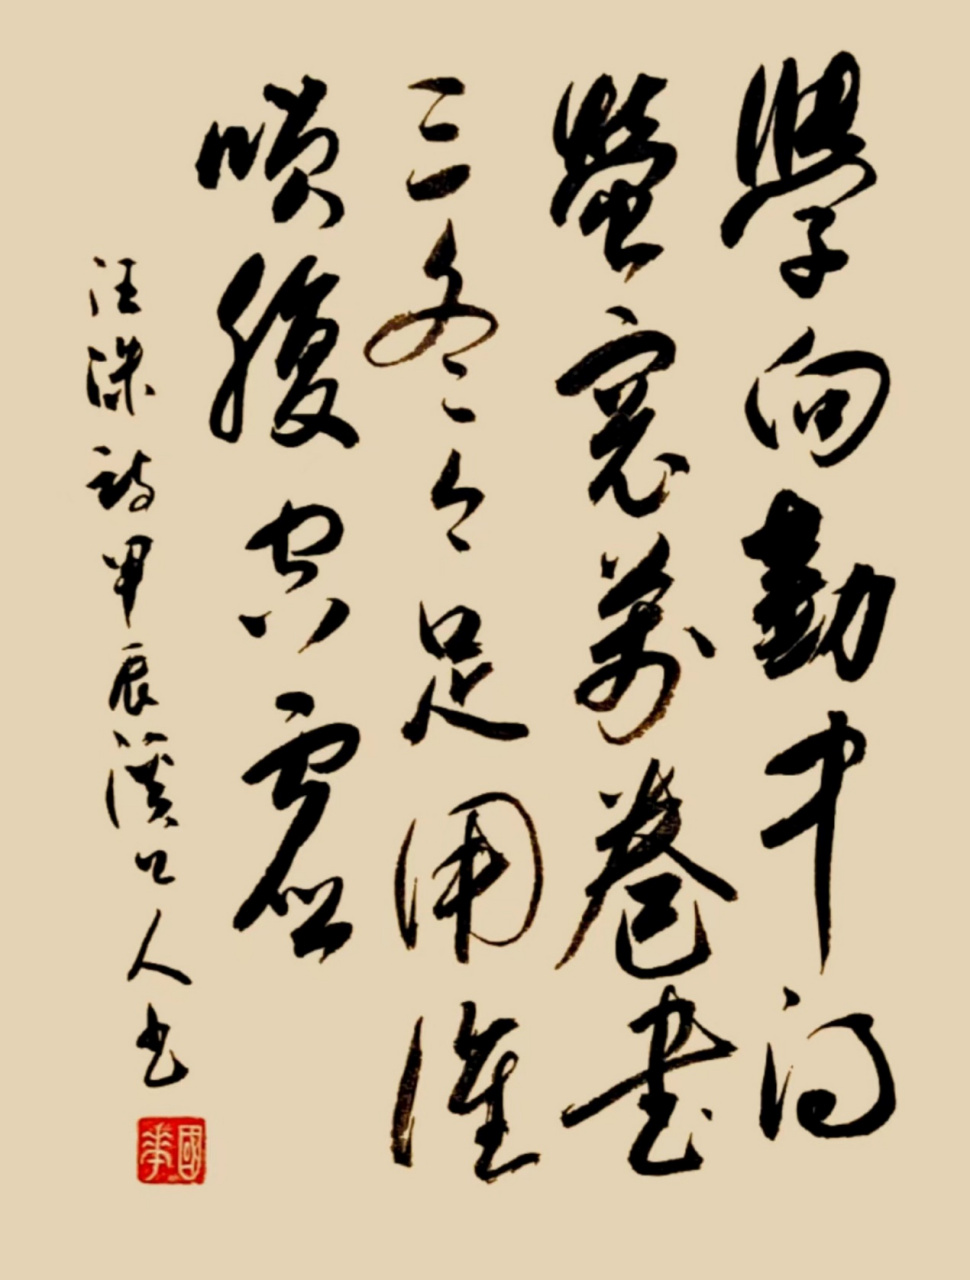 學向勤中得
螢窓萬卷書
三冬今足用誰
笑腹空虛
汪洙詩甲辰溪口人书
國華